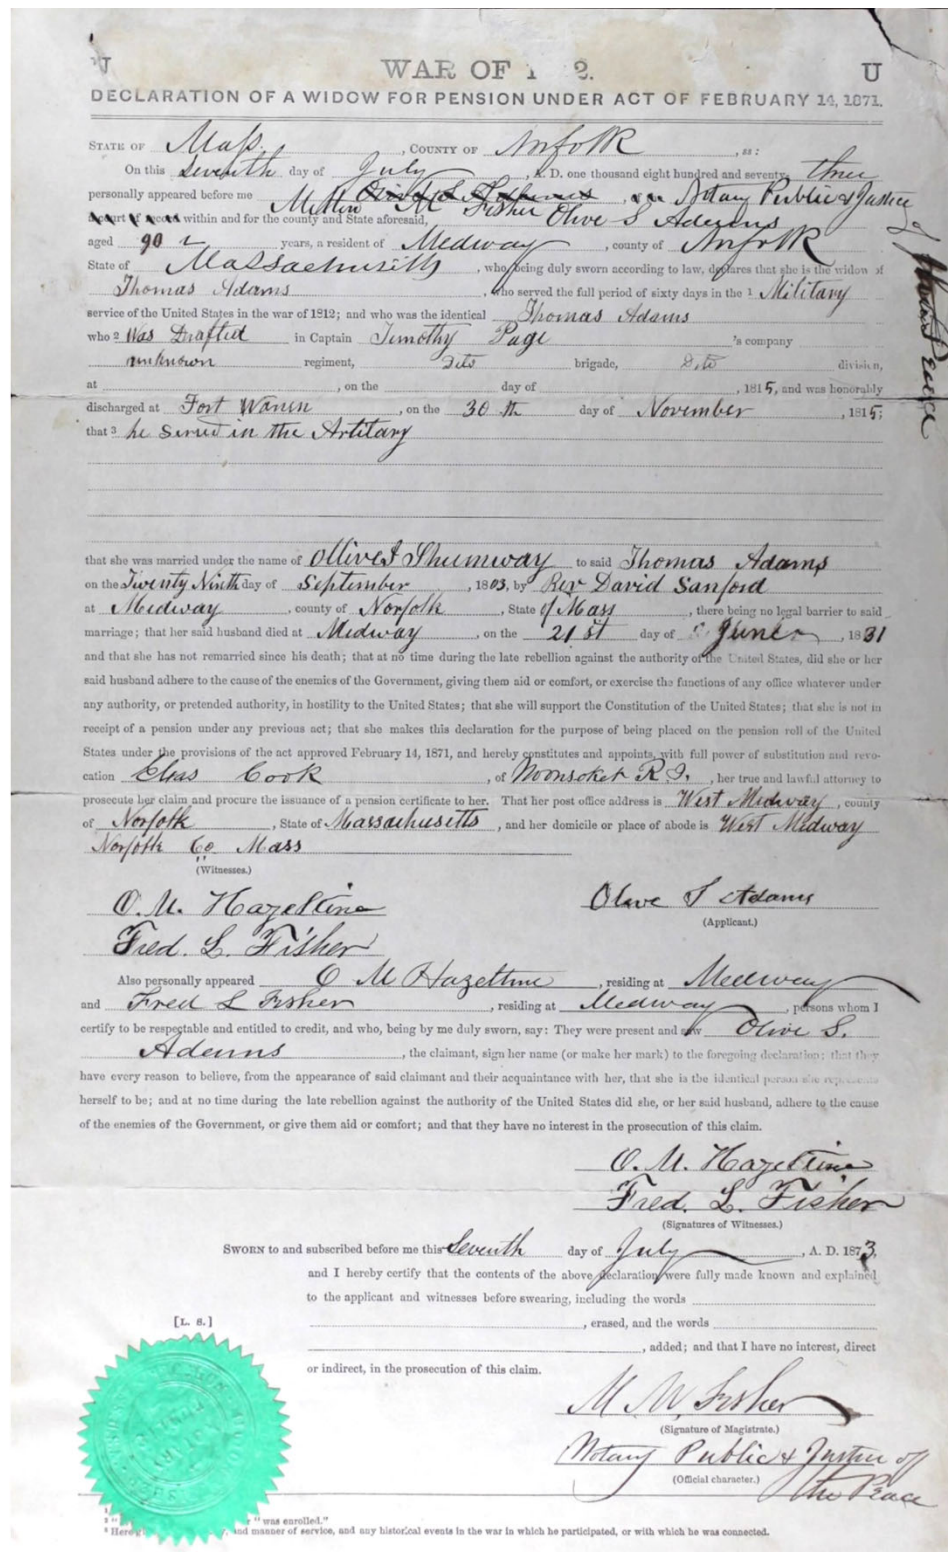 U WAR OF 1 2. U
DECLARATION OF A WIDOW FOR PENSION UNDER ACT OF FEBRUARY 14, 1871.
STATE OF Mass. , COUNTY OF Norfolk , ss:
On this Seventh day of July , A. D. one thousand eight hundred and seventy three
personally appeared before me , Notary Public & Justice
of the Peace
Milton M Fisher Olive S Adams
a court of record within and for the county and State aforesaid,
aged 90 years, a resident of Medway , county of Norfolk
State of Massachusetts , who, being duly sworn according to law, declares that she is the widow of
Thomas Adams , who served the full period of sixty days in the 1 Military
service of the United States in the war of 1812; and who was the identical Thomas Adams
who 2 Was Drafted in Captain Timothy Page 's company
unknown regiment, Dito brigade, Dito division,
at , on the day of , 1815, and was honorably
discharged at Fort Waren , on the 30 th day of November , 1815;
that 3 he Served in the Artilary
that she was married under the name of Shumway to said Thomas Adams
on the Twenty Ninth day of September , 1803, by Rev David Sanford
at Midway , county of Norfolk , State of Mass , there being no legal barrier to said
marriage; that her said husband died at Midway , on the 21 st day of June , 1831
and that she has not remarried since his death; that at no time during the late rebellion against the authority of the United States, did she or her
said husband adhere to the cause of the enemies of the Government, giving them aid or comfort, or exercise the functions of any office whatever under
any authority, or pretended authority, in hostility to the United States; that she will support the Constitution of the United States; that she is not in
receipt of a pension under any previous act; that she makes this declaration for the purpose of being placed on the pension roll of the United
States under the provisions of the act approved February 14, 1871, and hereby constitutes and appoints, with full power of substitution and revo-
cation Cook , of Woonsoket R. I. , her true and lawful attorney to
prosecute her claim and procure the issuance of a pension certificate to her. That her post office address is West Midway , county
of Norfolk , State of Massachusetts , and her domicile or place of abode is West Midway
Norfolk Co. Mass
(Witnesses.)
O. M. Hazeltine Olive S Adams
(Applicant.)
Fred. L. Fisher
Also personally appeared O M Hazeltine , residing at Medway
and Fred L Fisher , residing at Medway , persons whom I
certify to be respectable and entitled to credit, and who, being by me duly sworn, say: They were present and saw Olive S.
Adams , the claimant, sign her name (or make her mark) to the foregoing declaration; that they
have every reason to believe, from the appearance of said claimant and their acquaintance with her, that she is the identical person she represents
herself to be; and at no time during the late rebellion against the authority of the United States did she, or her said husband, adhere to the cause
of the enemies of the Government, or give them aid or comfort; and that they have no interest in the prosecution of this claim.
O. M. Hazeltine
Fred. L. Fisher
(Signatures of Witnesses.)
SWORN to and subscribed before me this Seventh day of July , A. D. 1873,
and I hereby certify that the contents of the above declaration were fully made known and explained
to the applicant and witnesses before swearing, including the words
[L. S.] , erased, and the words
, added; and that I have no interest, direct
or indirect, in the prosecution of this claim.
M. M. Fisher
(Signature of Magistrate.)
Notary Public & Justice of
the Peace
(Official character.)
" was enrolled."
3 Here and manner of service, and any historical events in the war in which he participated, or with which he was connected.